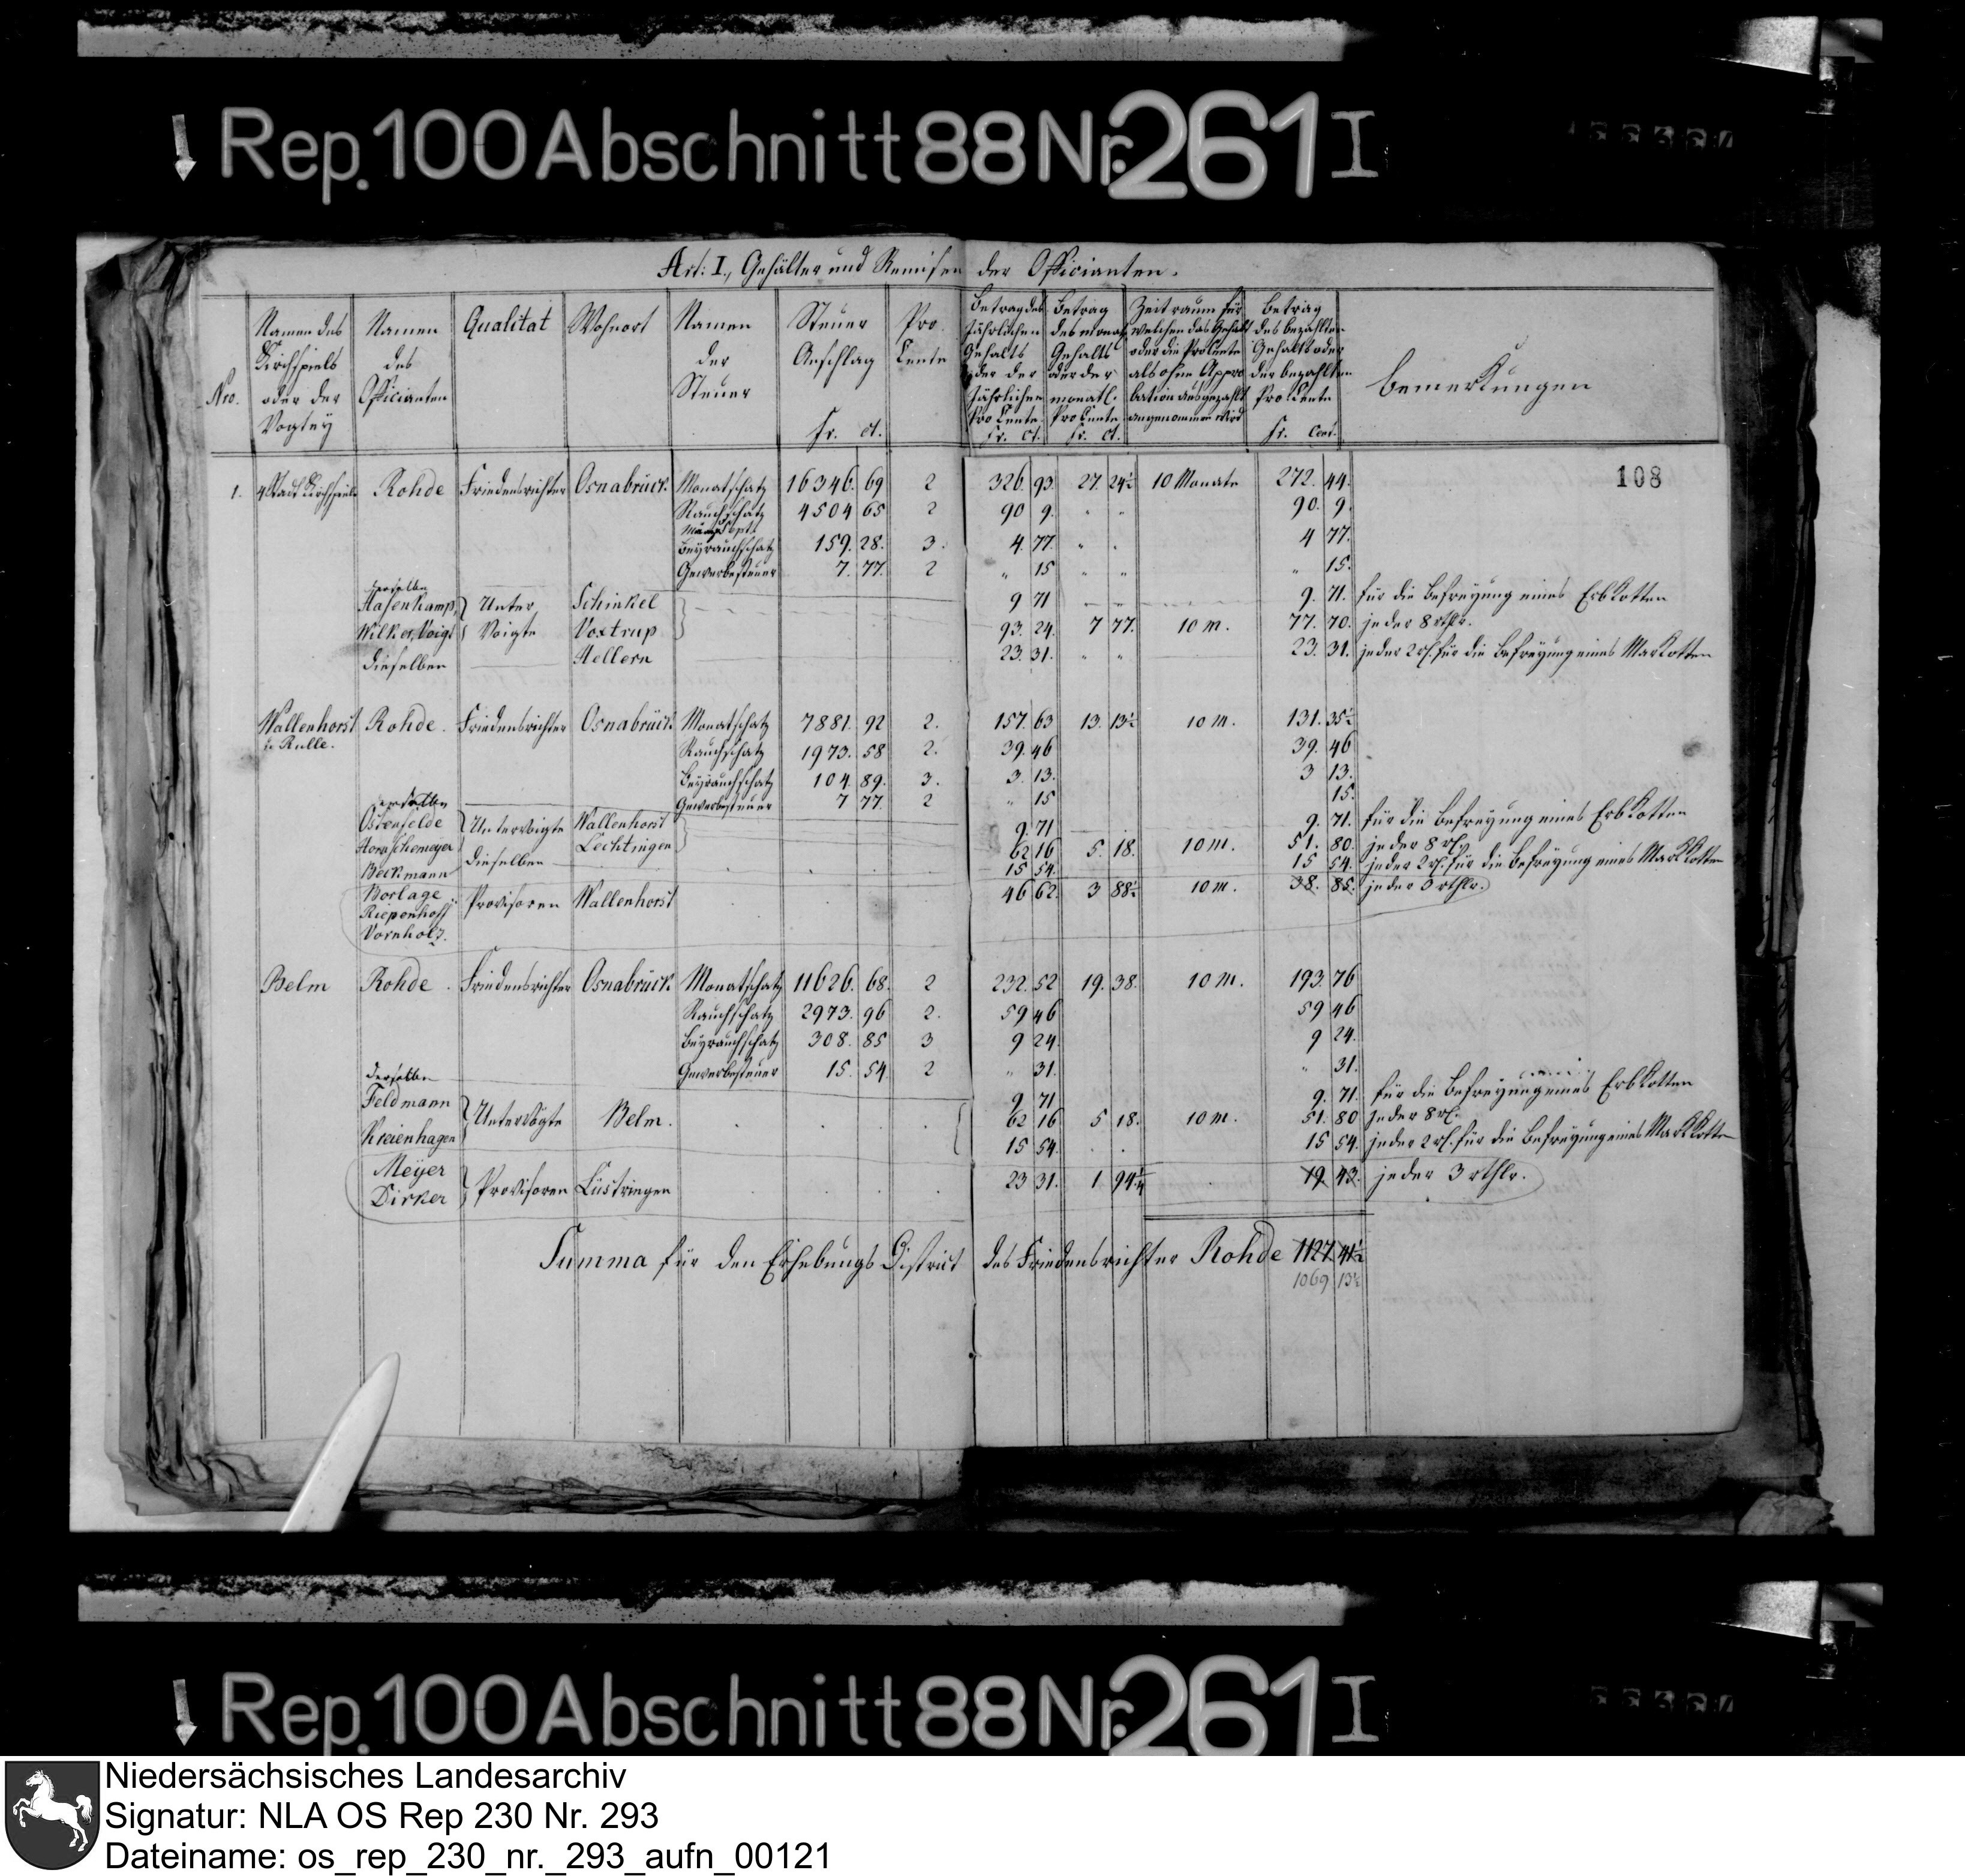 Rep. 100 Abschnitt 88 Nr. 261 I
Art: I., Gehälter und Remisen der Officianten.
Nro.
Namen des Kirchspiels oder der Vogtey
Namen des Officianten
Qualitat
Wohnort
Namen der Steuer
Steuer Anschlag fr. ct.
Pro Cente
Betrag des jährlichen Gehalts oder der jährlichen Pro Cente fr. ct.
Betrag des monatl. Gehalts oder der monatl. Pro Cente fr. ct.
Zeitraum für welchen das Gehalt oder die Pro Cente als ohne Approbation ausgezahlt angenommen wird
Betrag des bezahlten Gehalts oder der bezahlten Pro Cente fr. Cent.
Bemerkungen
108
1. 4 Stadt Kirchspiele Rohde Friedensrichter Osnabrück Monatschatz 16346. 69 2 326. 93. 27. 24½ 10 Monate 272. 44.
Rauchschatz 4504 65 2 90 9. " " 90. 9.
Beyrauchschatz 159. 28. 3. 4. 77. " . 4 77.
Gewerbesteuer 7. 77. 2 " 15 " " " 15.
derselbe 9 71 9. 71. für die Befreyung eines Erbkotten
Hasenkamp, Wilker, Voigt Unter Voigte Schinkel Voxtrup 93. 24. 7 77. 10 m. 77. 70. jeder 8 rthlr.
dieselben Hellern 23. 31. " " 23. 31. jeder 2 rl. für die Befreyung eines Markotten
Wallenhorst u. Rulle. Rohde. Friedensrichter Osnabrück Monatschatz 7881. 92 2. 157. 63 13. 13½ 10 m. 131. 35½
Rauchschatz 1973. 58 2. 39. 46 39. 46
Beyrauchschatz 104. 89. 3. 3. 13. 3 13.
Gewerbesteuer 7 77. 2 " 15 15.
derselbe 9. 71 9. 71. für die Befreyung eines Erbkotten
Ostenfelde Horstchemeyer Untervoigte Wallenhorst Lechtingen 62 16 5. 18. 10 m. 51. 80. jeder 8 rl.
Beckmann dieselben 15 54. 15 54. jeder 2 rl. für die Befreyung eines Markkotten
Borlage Riepenhoff Vornholz. Provisoren Wallenhorst 46 62. 3 88½ 10 m. 38. 85. jeder 3 rthlr.
Belm Rohde. Friedensrichter Osnabrück Monatschatz 11626. 68. 2 232. 52 19. 38. 10 m. 193. 76
Rauchschatz 2973. 96 2. 59 46 59 46
Beyrauchschatz 308. 85 3 9 24. 9 24.
Gewerbesteuer 15. 54. 2 " 31. " 31.
derselbe 9 71 9. 71. für die Befreyung eines Erbkotten
Feldmann Kreienhagen Untervögte Belm. 62 16 5 18. 10 m. 51. 80 jeder 8 rl.
15 54. 15 54. jeder 2 rl. für die Befreyung eines Markkotten
Meyer Dirker Provisoren Lüstringen 23 31. 1. 94¼ 19. 43. jeder 3 rthlr.
Summa für den Erhebungs District des Friedensrichter Rohde 1127. 41½
1069 13½
Rep. 100 Abschnitt 88 Nr. 261 I
Niedersächsisches Landesarchiv
Signatur: NLA OS Rep 230 Nr. 293
Dateiname: os_rep_230_nr._293_aufn_00121